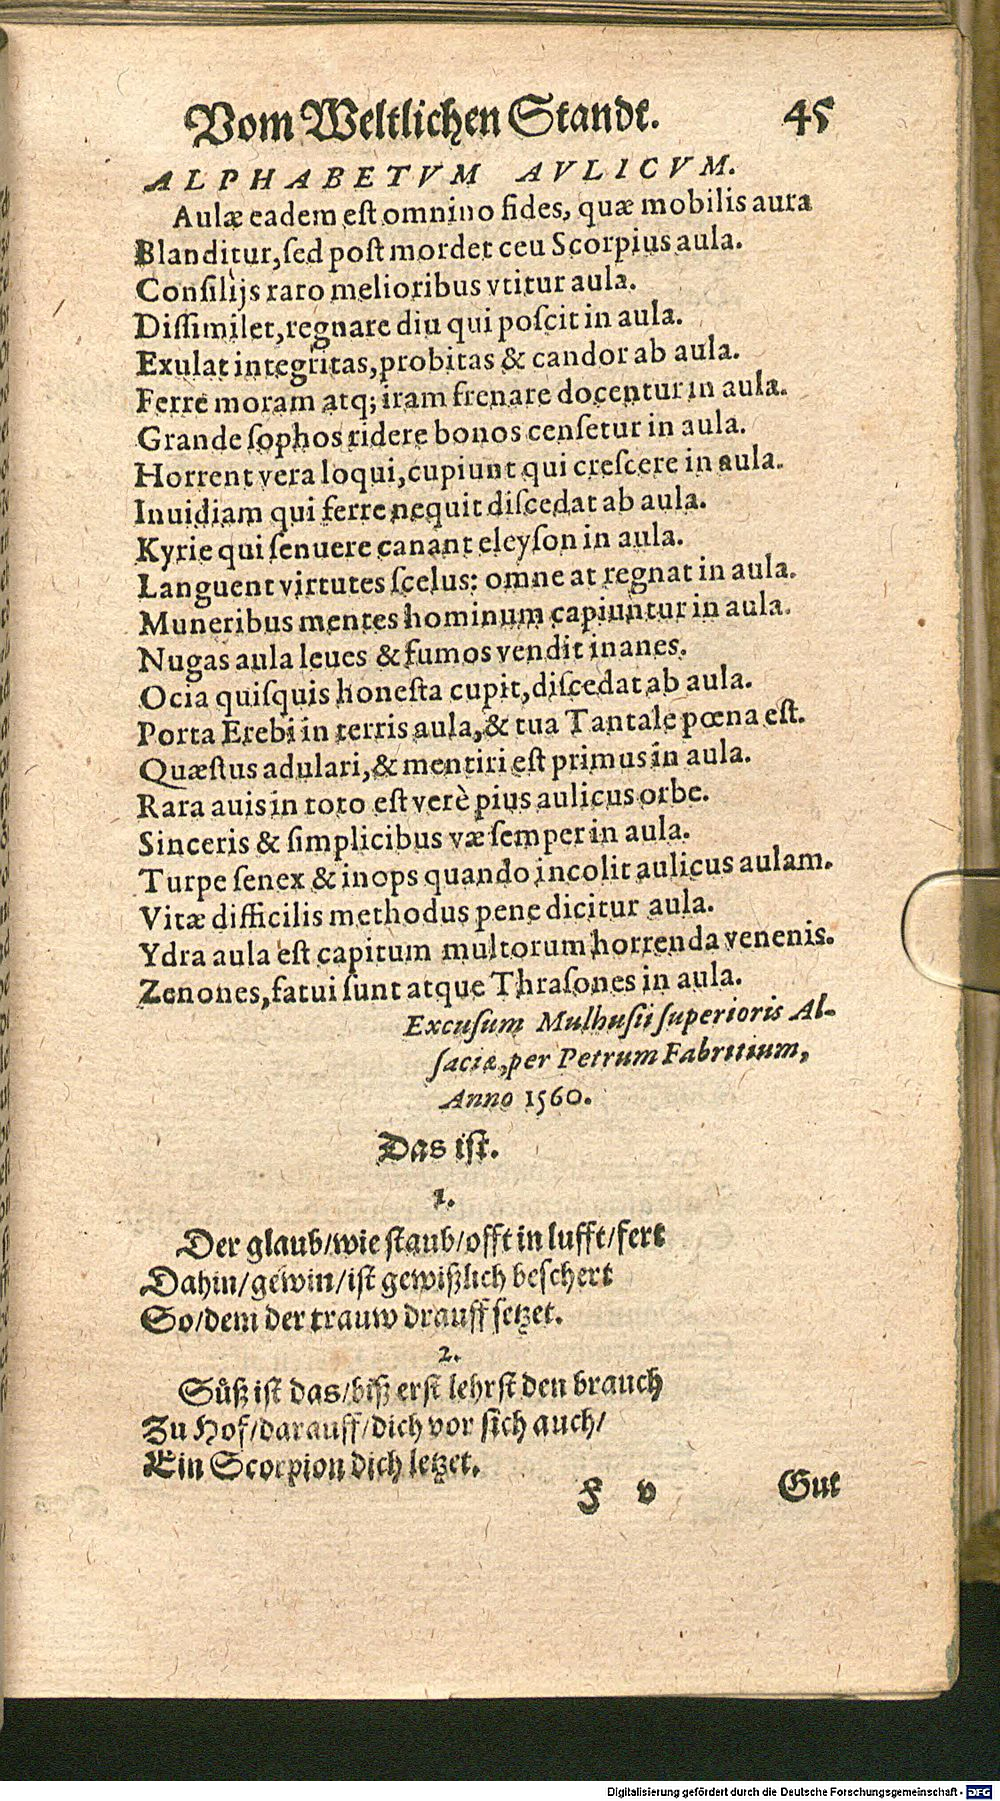 Vom Weltlichen Standt. 45
ALPHABETVM AVLICVM.
Aulæ eadem eſt omnino fides, quæ mobilis aura
Blanditur, ſed poſt mordet ceu Scorpius aula.
Conſilijs raro melioribus vtitur aula.
Diſſimilet, regnare diu qui poſcit in aula.
Exulat integritas, probitas & candor ab aula.
Ferre moram atq; iram frenare docentur in aula.
Grande ſophos ridere bonos cenſetur in aula.
Horrent vera loqui, cupiunt qui creſcere in aula.
Inuidiam qui ferre nequit diſcedat ab aula.
Kyrie qui ſenuere canant eleyſon in aula.
Languent virtutes ſcelus: omne at regnat in aula.
Muneribus mentes hominum capiuntur in aula.
Nugas aula leues & fumos vendit inanes.
Ocia quiſquis honeſta cupit, diſcedat ab aula.
Porta Erebi in terris aula, & tua Tantale pœna eſt.
Quæſtus adulari, & mentiri eſt primus in aula.
Rara auis in toto eſt verè pius aulicus orbe.
Sinceris & ſimplicibus væ ſemper in aula.
Turpe ſenex & inops quando incolit aulicus aulam.
Vitæ difficilis methodus pene dicitur aula.
Ydra aula eſt capitum multorum horrenda venenis.
Zenones, fatui ſunt atque Thraſones in aula.
Excuſum Mulhuſii ſuperioris Al-
ſaciæ, per Petrum Fabritium,
Anno 1560.
Das iſt.
1.
Der glaub/wie ſtaub/offt in lufft/fert
Dahin/gewin/iſt gewißlich beſchert
So/dem der trauw drauff ſetzet.
2.
Süß iſt das/biß erſt lehrſt den brauch
Zu Hof/darauff/dich vor ſich auch/
Ein Scorpion dich letzet.
F v Gut
Digitalisierung gefördert durch die Deutsche Forschungsgemeinschaft - DFG